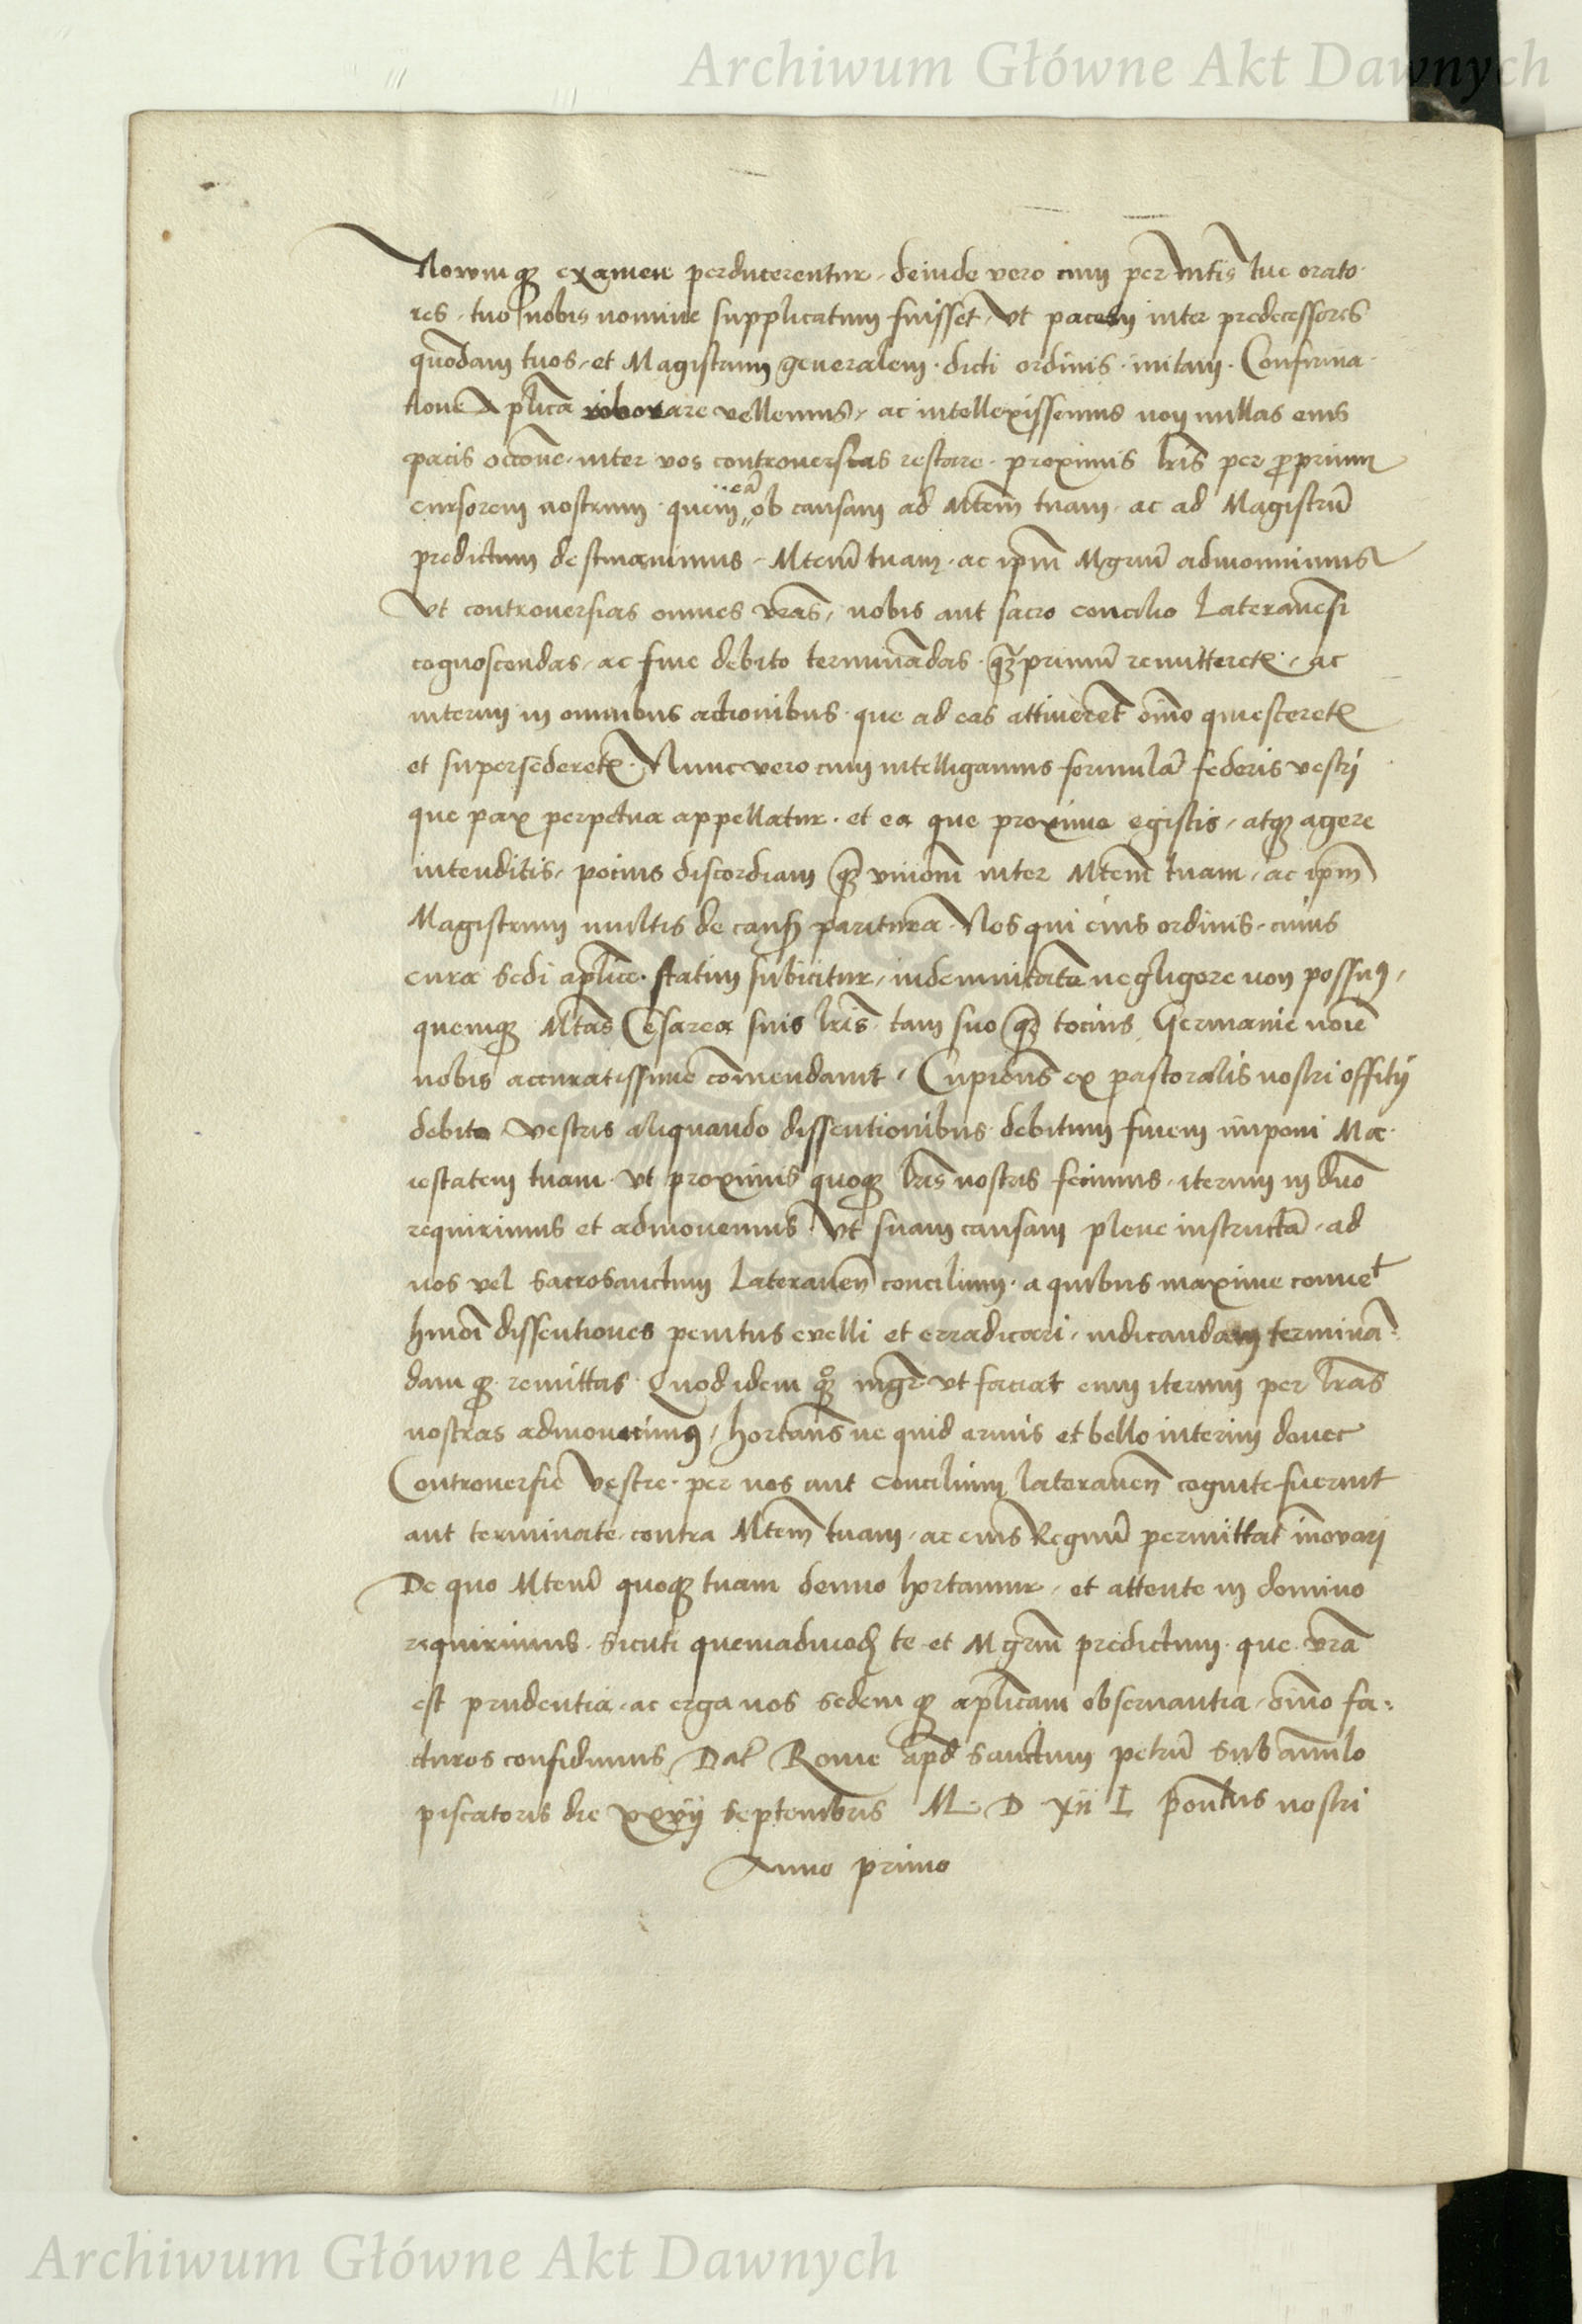 Archiwum Główne Akt Dawnych
Novumq₃ examen perducerentur, deinde vero cum per Mtis tue orato-
res, tuo nobis nomine supplicatum fuisset, vt pacem inter predecessores
quōdam tuos, et Magistrum generalem dicti ordinis initam. Confirma-
tione Aplica roborare vellemus, ac intellexissemus non nullas eius
pacis occōne inter vos controversias restare, proximis lris per proprium
cursorem nostrum quem eā ob causam ad Mtem tuam, ac ad Magistrū
predictum destinavimus, Mtem tuam, ac ipm Mgrum admonuimus
Vt controversias omnes vras, nobis aut sacro concilio Lateranēsi
cognoscendas, ac fine debito terminādas, q̄primū remitteretꝭ, ac
interim in omnibus actionibus que ad eas attinerēt oīno quiesceretꝭ
et supersēderetꝭ. Nunc vero cum intelligamus formulā federis vestri
que pax perpetua appellatur, et ea que proxime egistis, atq₃ agere
intenditis, pocius discordiam q̄ vnionē inter Mtem tuam, ac ipm
Magistrum multis de causis paritura. Nos qui eius ordinis, cuius
cura sedi aplice statim subicitur, indemnitate negligere non possum⁹,
quemq₃ Mtas Cesarea suis lris, tam suo q̄ tocius Germanie noīe
nobis accuratissime cōmendavit, Cupientes ex pastoralis nostri offitij
debito vestris aliquando dissentionibus debitum finem imponi Ma-
iestatem tuam, vt proximis quoq₃ lris nostris fecimus, iterum in dno
requirimus et admonemus, Vt suam causam plene instructā, ad
nos vel sacrosanctum Lateraneñ concilium, a quibus maxime conuēt
hmōi dissentiones penitus evelli et erradicari, iudicandam terminā-
damq₃ remittas. Quod idem q°₃ mgr vt faciat eum iterum per lras
nostras admonuimus, hortantes ne quid armis et bello interim donec
Controversie Vestre per nos aut concilium lateraneñ cognite fuerint
aut terminate, contra Mtem tuam, ac eius Regnum permittat inovari
De quo Mtem quoq₃ tuam denuo hortamur, et attente in domino
requirimus, sicuti quemadmodū te et Mgrm predictum, que vra
est prudentia, ac erga nos sedemq₃ aplicam observantia, oīno fa-
cturos confidimus, Dat Rome apd sanctum petrū sub annulo
piscatoris die xxvij Septembris M. D xii I Pontus nostri
Anno primo
Archiwum Główne Akt Dawnych